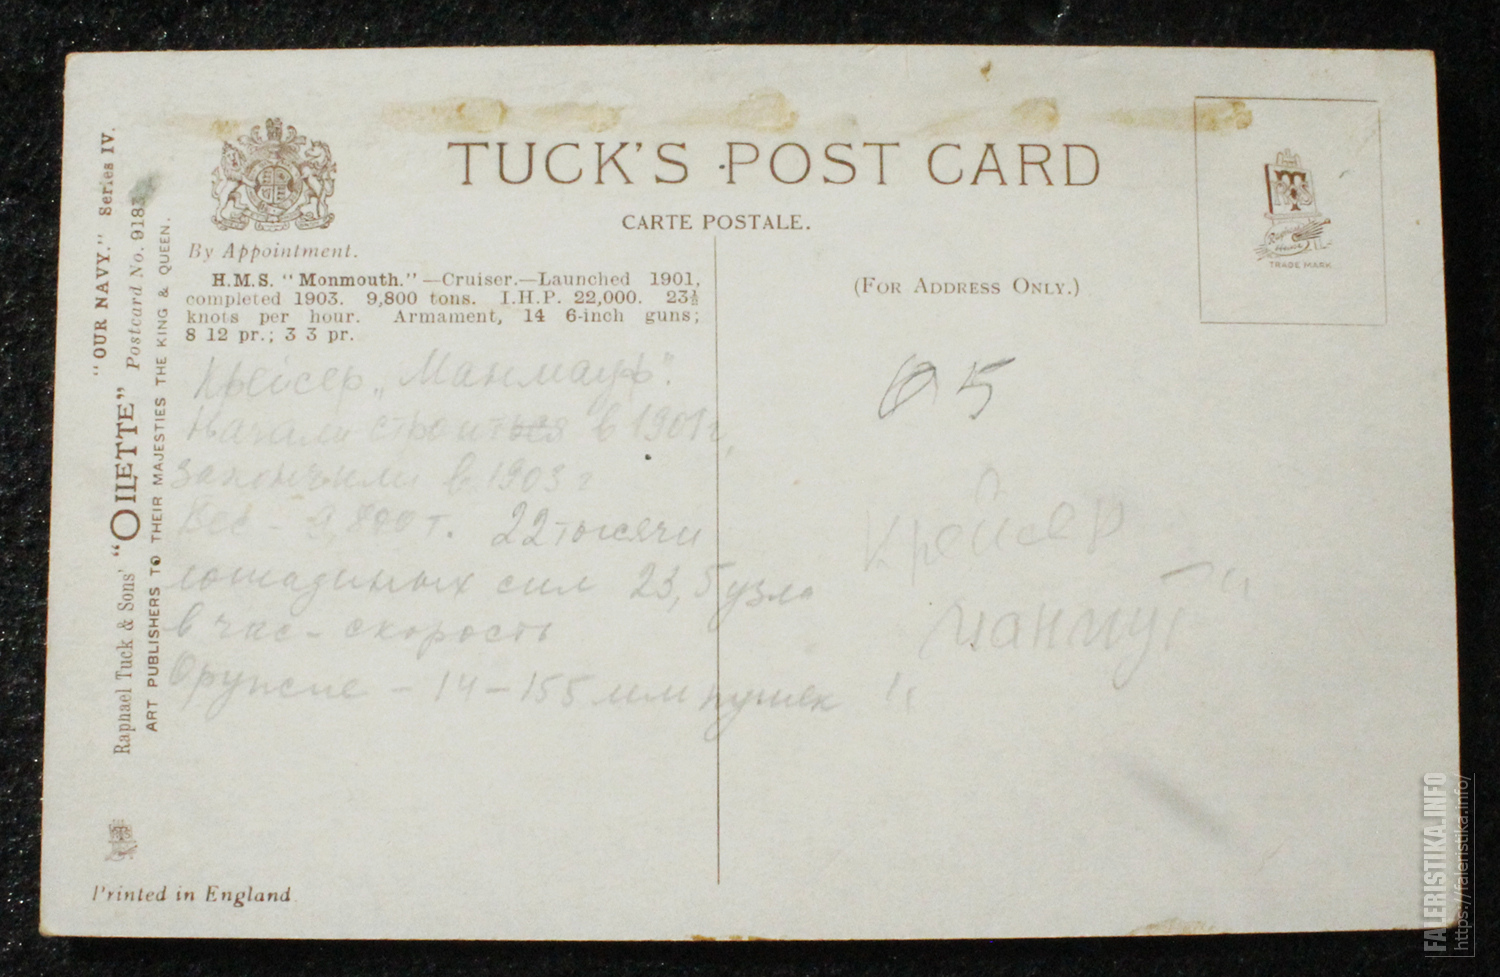 TUCK'S POST CARD
CARTE POSTALE.
By Appointment.
H.M.S. "Monmouth."—Cruiser.—Launched 1901,
completed 1903. 9,800 tons. I.H.P. 22,000. 23½
knots per hour. Armament, 14 6-inch guns;
8 12 pr.; 3 3 pr.
Крейсер „Манмауф".
Начали строиться в 1901 г.
закончили в 1903 г
Вес - 9,800 т. 22 тысячи
лошадиных сил 23,5 узла
в час - скорость
Оружие - 14 - 155 мм пушек
(For Address Only.)
TRADE MARK
05
Крейсер
"OUR NAVY." Series IV.
Raphael Tuck & Sons' "OILETTE" Postcard No.
ART PUBLISHERS TO THEIR MAJESTIES THE KING & QUEEN.
Printed in England
FALERISTIKA.INFO
https://faleristika.info/